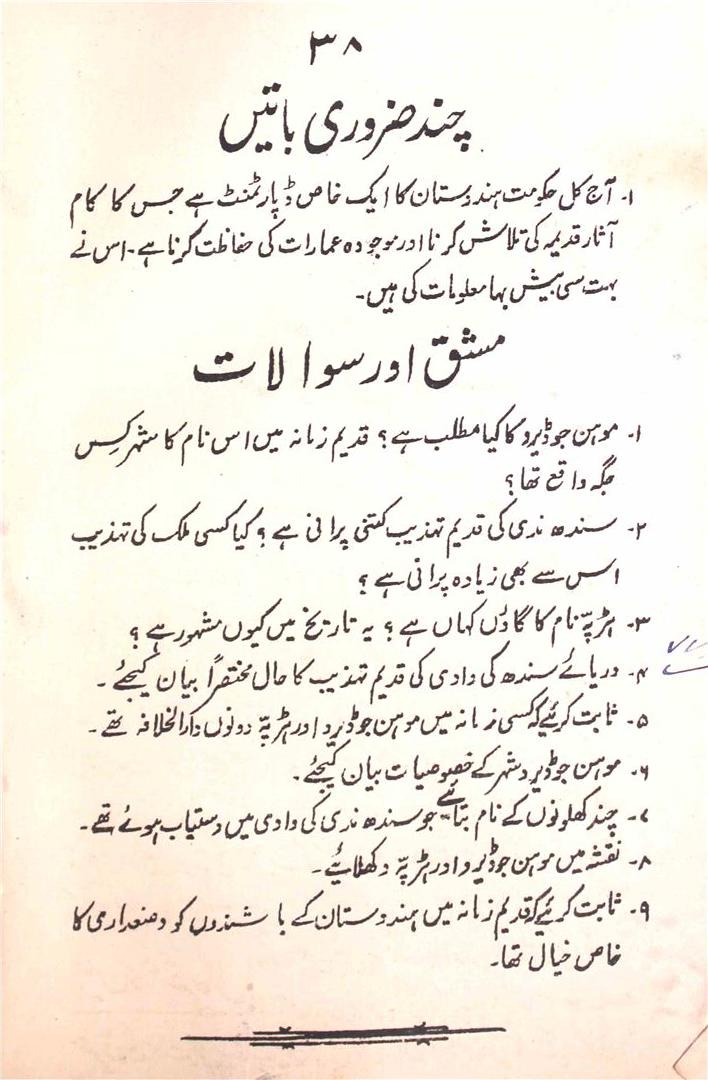 ۳۸
چند ضروری باتیں
۱۔ آج کل حکومت ہندوستان کا ایک خاص ڈپارٹمنٹ ہے جس کا کام
آثار قدیمہ کی تلاش کرنا اور موجودہ عمارات کی حفاظت کرنا ہے۔ اس نے
بہت سی بیش بہا معلومات کی ہیں۔
مشق اور سوالات
۱۔ موہن جوڈیرو کا کیا مطلب ہے؟ قدیم زمانہ میں اس نام کا شہر کس
جگہ واقع تھا؟
۲۔ سندھ ندی کی قدیم تہذیب کتنی پرانی ہے؟ کیا کسی ملک کی تہذیب
اس سے بھی زیادہ پرانی ہے؟
۳۔ ہڑپہ نام کا گاؤں کہاں ہے؟ یہ تاریخ میں کیوں مشہور ہے؟
۴۔ دریائے سندھ کی وادی کی قدیم تہذیب کا حال مختصراً بیان کیجئے۔
۵۔ ثابت کرئیے کہ کسی زمانہ میں موہن جوڈیرو اور ہڑپہ دونوں دارالخلافہ تھے۔
۶۔ موہن جوڈیرو شہر کے خصوصیات بیان کیجئے۔
۷۔ چند کھلونوں کے نام بتائیے جو سندھ ندی کی وادی میں دستیاب ہوئے تھے۔
۸۔ نقشہ میں موہن جوڈیرو اور ہڑپہ دکھلائیے۔
۹۔ ثابت کرئیے کہ قدیم زمانہ میں ہندوستان کے باشندوں کو وضعداری کا
خاص خیال تھا۔